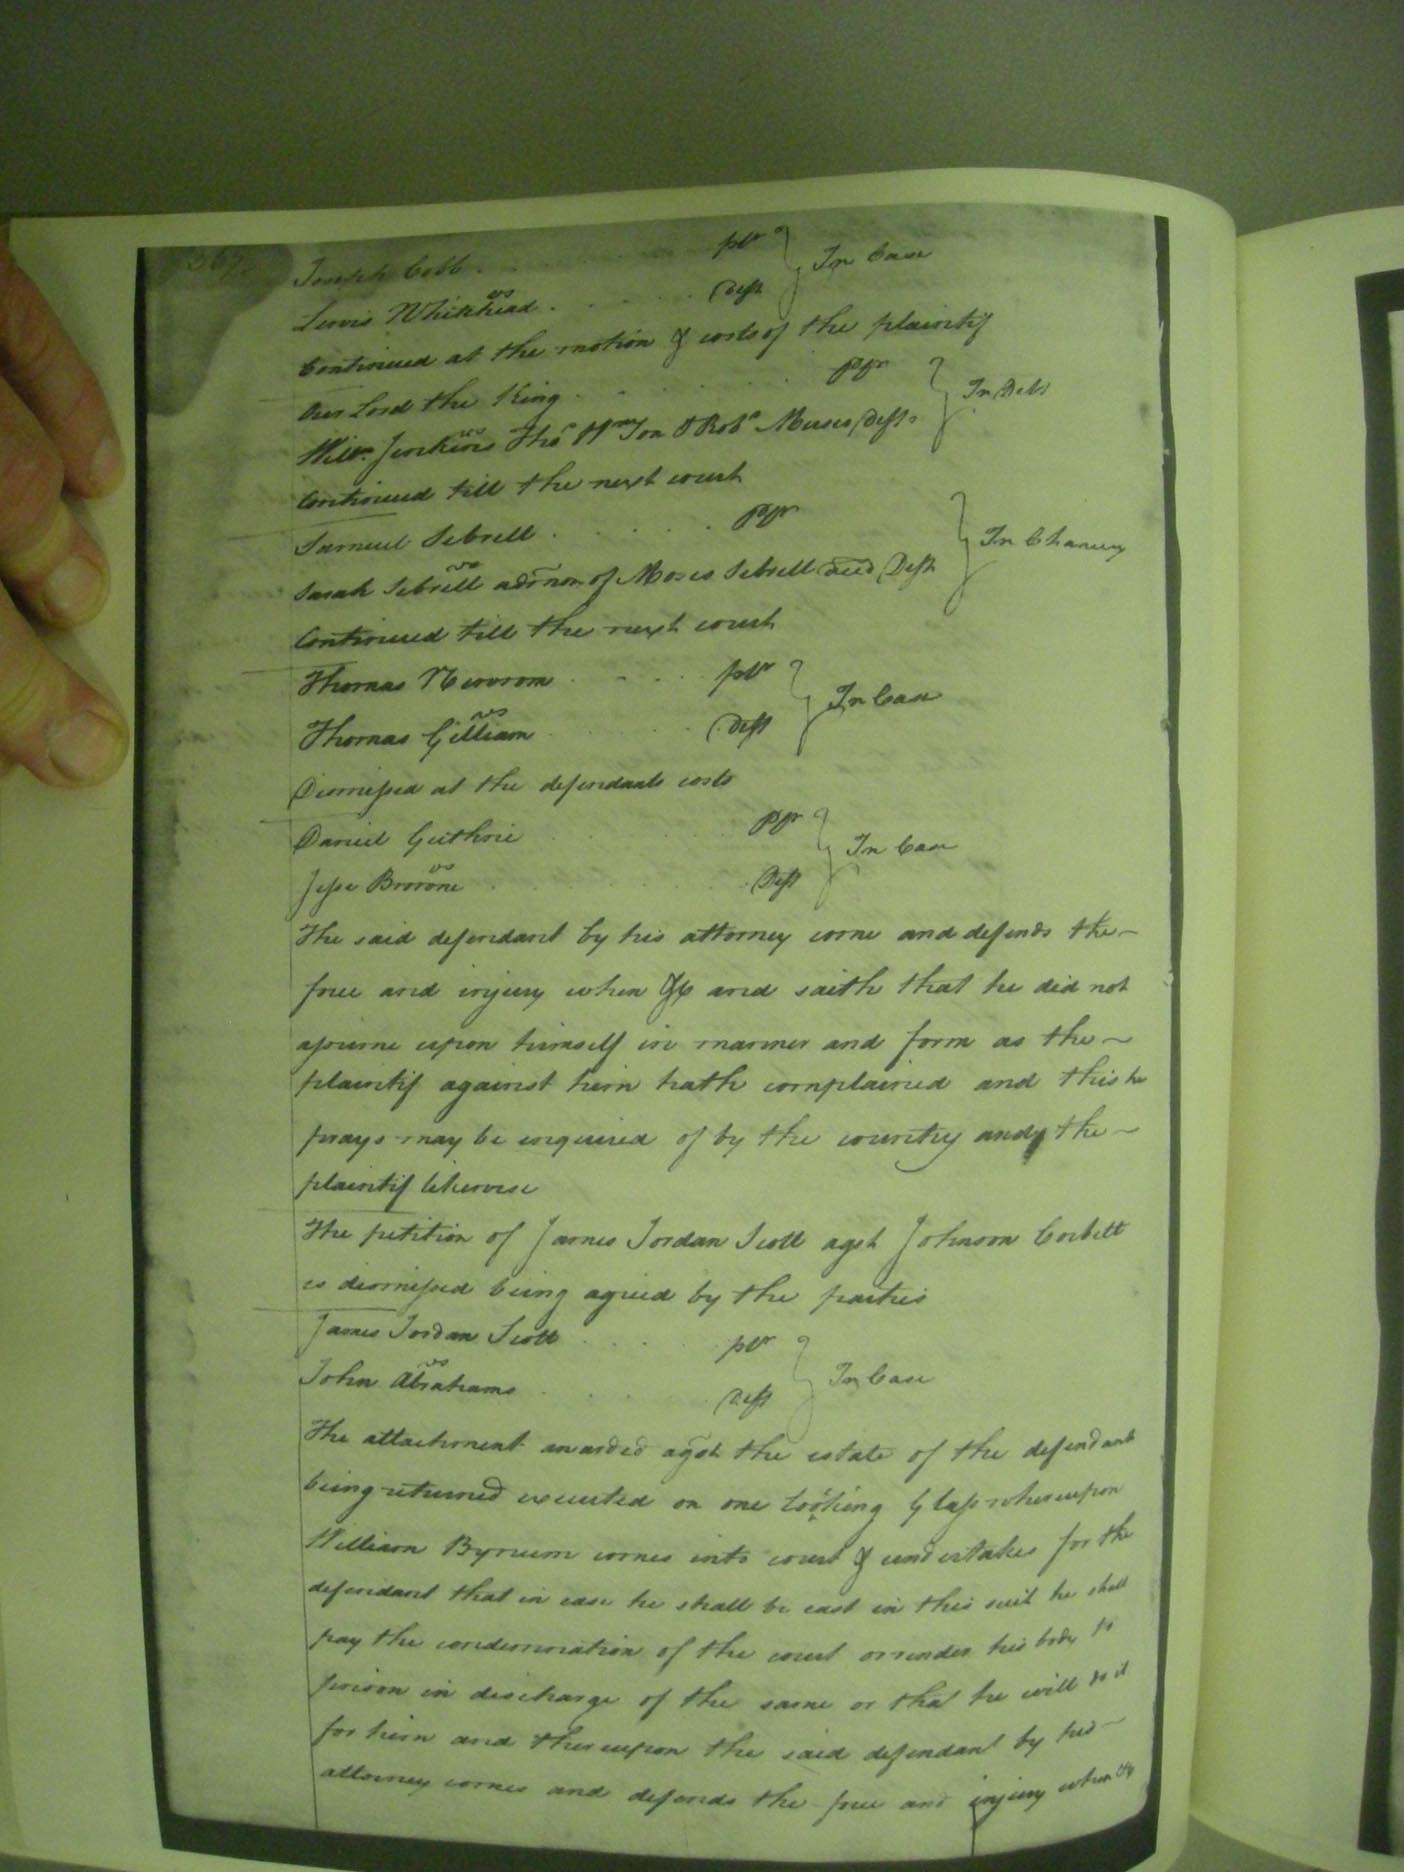 Joseph Cobb . . . . . . pltf } In Case
vs
Lewis Whitehead . . . . . Deft
Continued at the motion & costs of the plaintif
Our Lord the King . . . . . . } In Debt
vs
Willm. Jenkins Thos Wm Jon & Robt Deft
Continued till the next court
Samuel Sebrell . . . . . } In Chancery
vs
Sarah Sebrell admor of Moses Sebrell deced Deft
Continued till the next court
Thomas Newsom . . . . pltf } In Case
vs
Thomas Gilliam . . . . . Deft
Dismissed at the defendants costs
Daniel Guthrie . . . . } In Case
vs
Jesse Browne . . . . . Deft
The said defendant by his attorney come and defends the
force and injury when &c and saith that he did not
assume upon himself in manner and form as the
plaintif against him hath complained and this he
prays may be inquired of by the country and the
plaintif likewise
The petition of James Jordan Scott agst Johnson Corbett
is dismissed being agreed by the parties
James Jordan Scott . . . . pltf } In Case
vs
John Abrahams . . . . . Deft
The attachment awarded agst the estate of the defendant
being returned executed on one looking Glass whereupon
William Bynum comes into court & undertakes for the
defendant that in case he shall be cast in this suit he shall
pay the condemnation of the court or render his body to
prison in discharge of the same or that he will do it
for him and thereupon the said defendant by his
attorney comes and defends the force and injury when &c